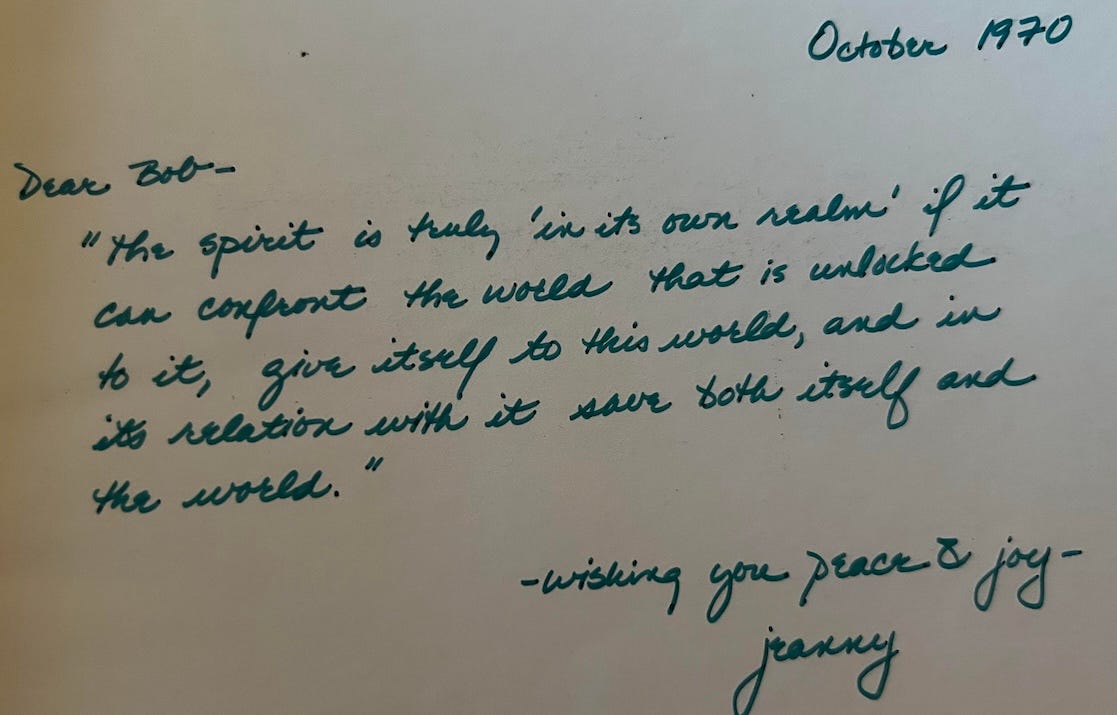 October 1970
Dear Bob-
"the spirit is truly 'in its own realm' if it
can confront the world that is unlocked
to it, give itself to this world, and in
its relation with it save both itself and
the world."
-wishing you peace & joy-
jeanny